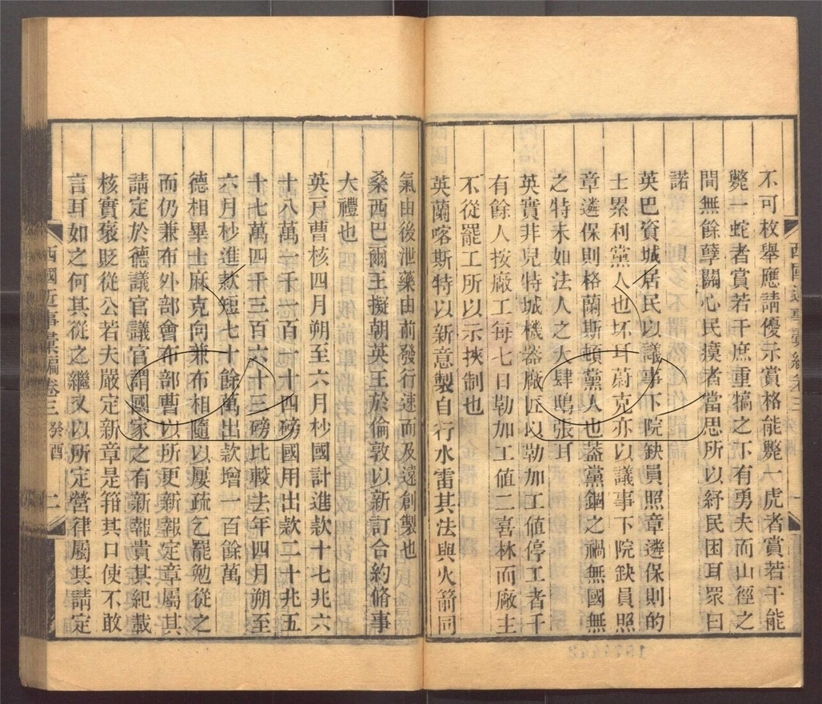 不可枚舉應請優示賞格能斃一虎者賞若干能
斃一蛇者賞若干庶重犒之下有勇夫而山徑之
間無餘孽關心民瘼者當思所以紓民困耳眾曰
諾
英巴資城居民以議事下院缺員照章遴保則的
士累利黨人也坏耳蔚克亦以議事下院缺員照
章遴保則格蘭斯頓黨人也蓋黨錮之禍無國無
之特未如法人之大肆鴟張耳
英實非兒特城機器廠匠以勒加工値停工者千
有餘人按廠工每七日勒加工値二喜林而廠主
不從罷工所以示挾制也
英蘭喀斯特以新意製自行水雷其法與火箭同
西國近事彙編卷三 癸酉
氣由後泄藥由前發行速而及遠創製也
桑西巴爾王擬朝英王於倫敦以新訂合約脩事
大禮也
英戸曹核四月朔至六月杪國計進款十七兆六
十八萬一千一百十四磅國用出款二十兆五
十七萬四千三百六十三磅比較去年四月朔至
六月杪進款短七十餘萬出款增一百餘萬
德相畢士麻克向兼布相隨以屢疏乞罷勉從之
而仍兼布外部會布部曹以所更新報定章屬其
請定於德議官議官謂國家之有新報貴其紀載
核實褒貶從公若夫嚴定新章是箝其口使不敢
言耳如之何其從之繼又以所定營律屬其請定
西國近事彙編卷三 癸酉